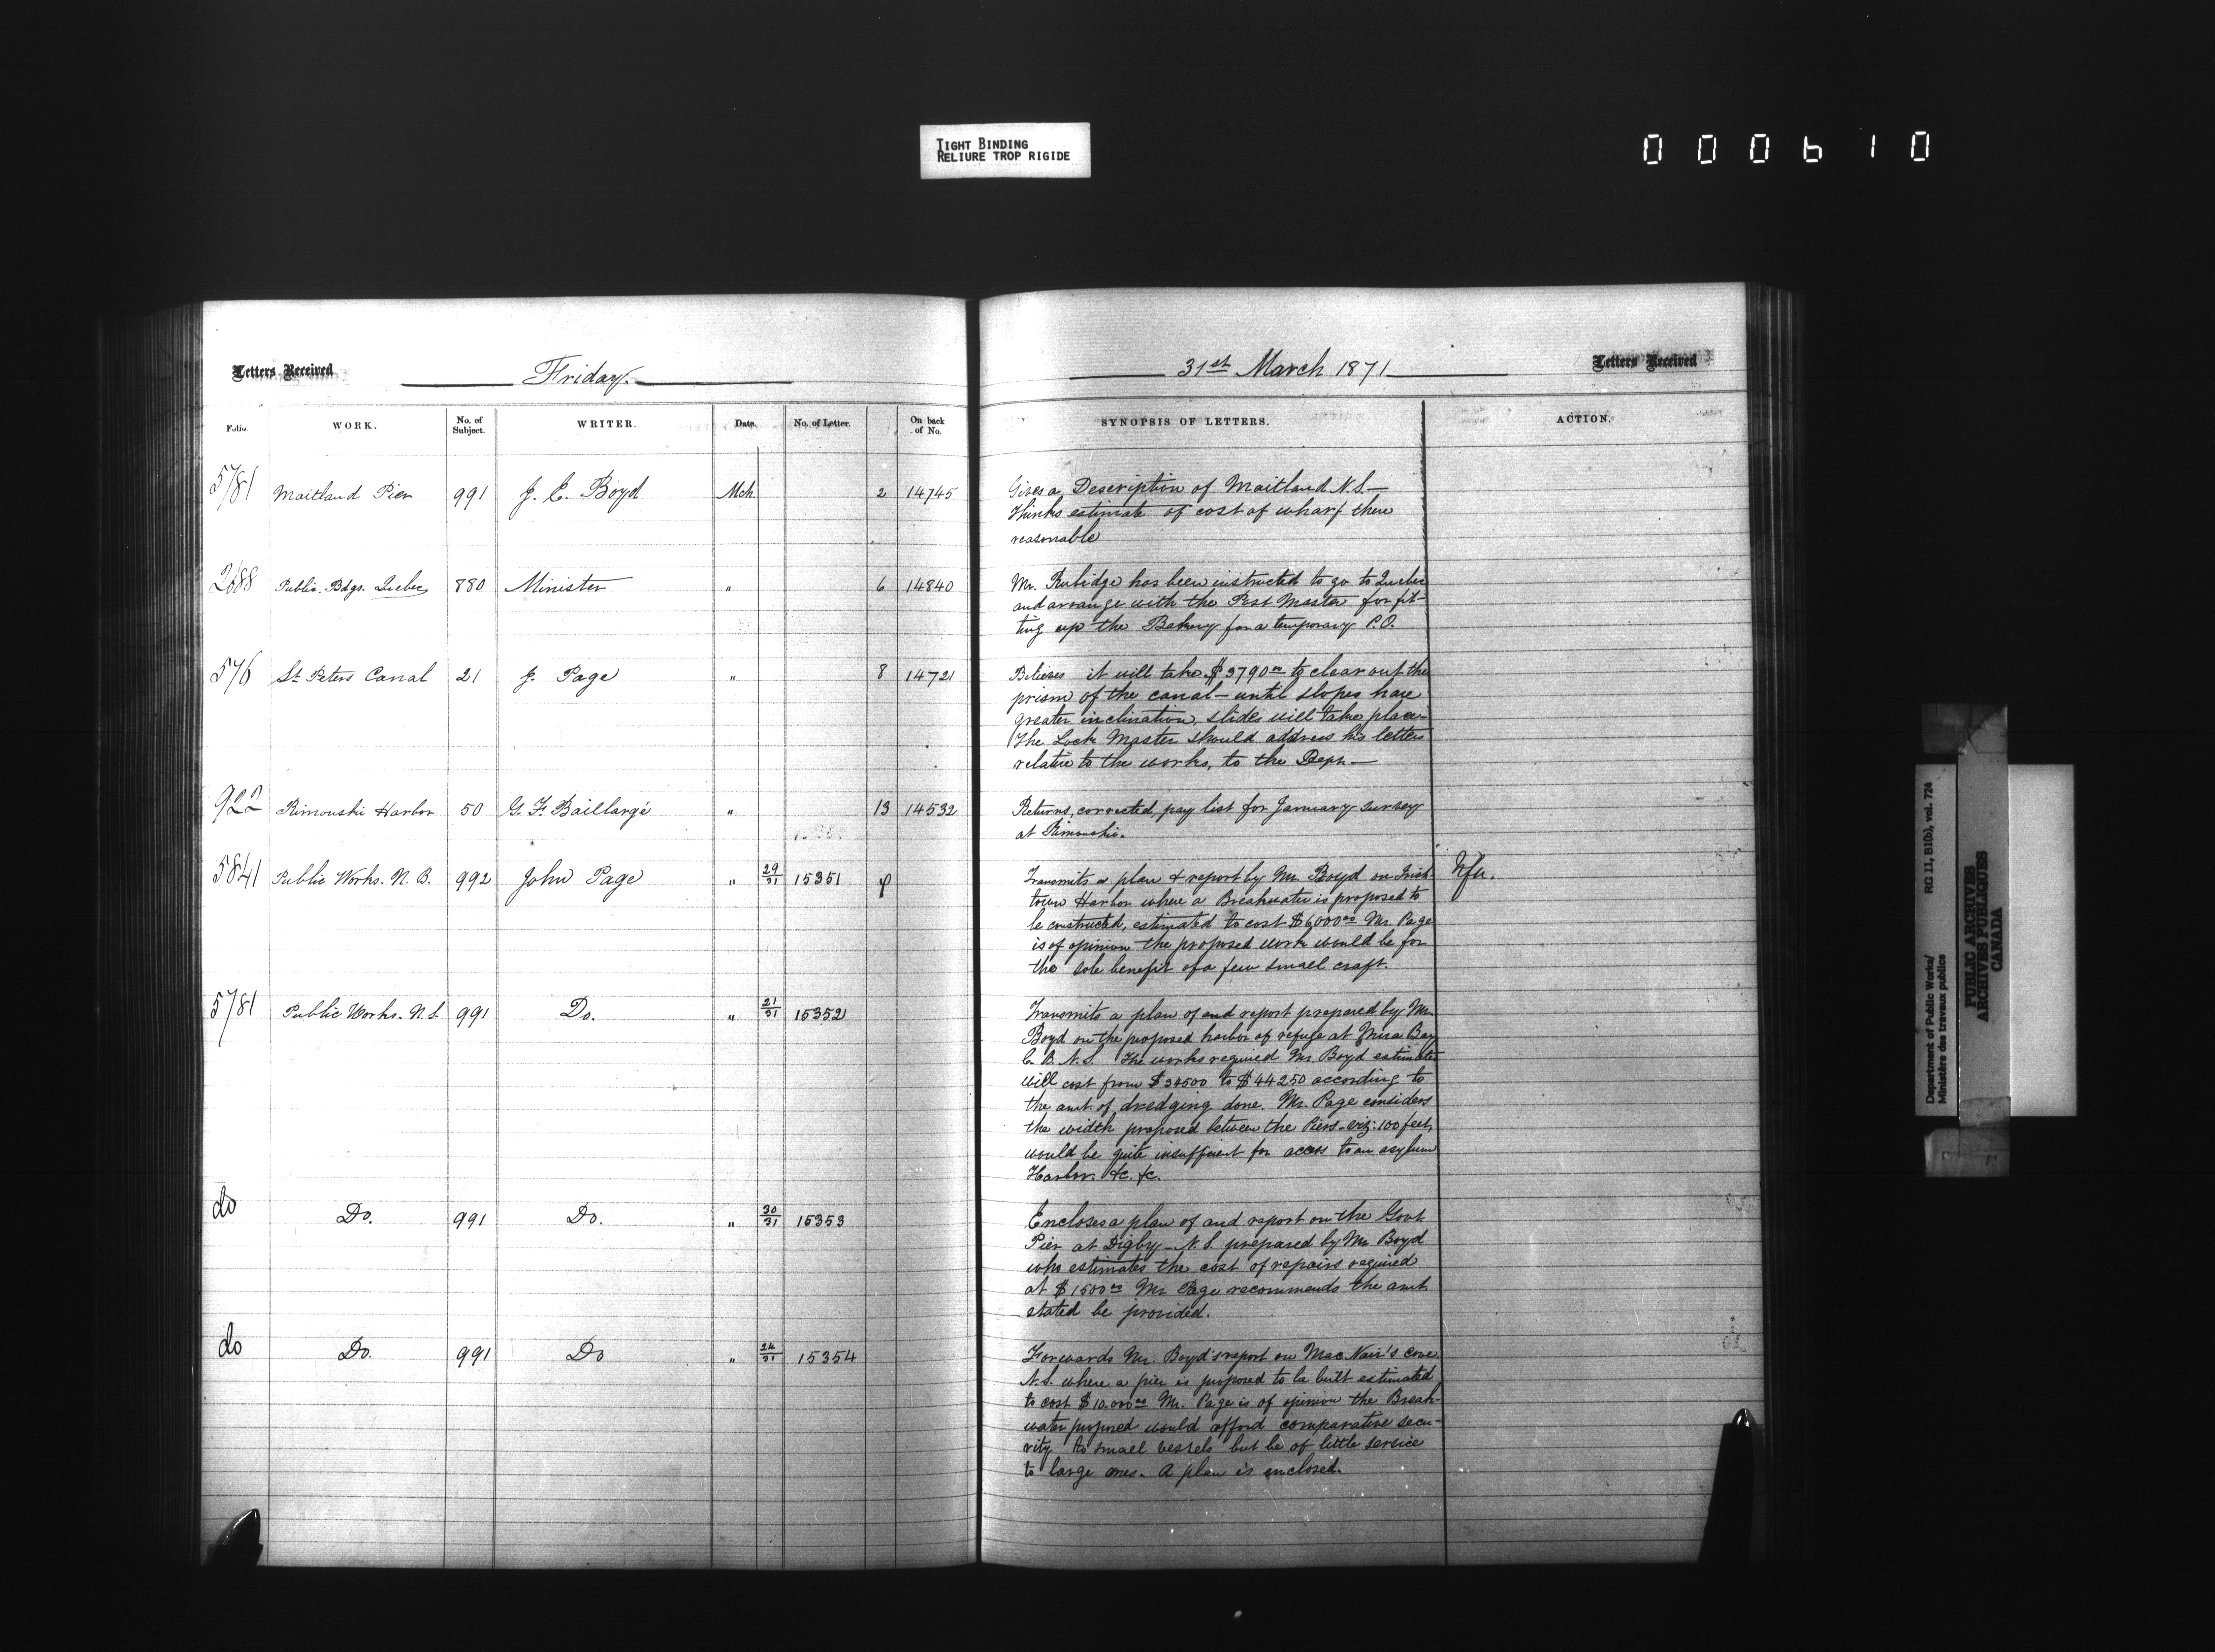 TIGHT BINDING
RELIURE TROP RIGIDE
000610
Letters Received
Friday.
31st March 1871
Letters Received
Folio. WORK. No. of Subject. WRITER. Date. No. of Letter. On back of No. SYNOPSIS OF LETTERS. ACTION.
5781 Maitland Pier 991 J. E. Boyd Mch. 2 14745 Gives a Description of Maitland N.S.—
Thinks estimate of cost of wharf there
reasonable
2688 Public Bdgs. Quebec 880 Minister " 6 14840 Mr. Rubidge has been instructed to go to Quebec
and arrange with the Post Master for fit-
ting up the Bakery for a temporary P.O.
576 St. Peters Canal 21 J. Page " 8 14721 Believes it will take $3790.00 to clear out the
prism of the canal — until slopes have
greater inclination, slides will take place—
The Lock Master should address his letters
relative to the works, to the Dept.—
922 Rimouski Harbor 50 G. F. Baillargé " 13 14532 Returns, corrected, pay list for January survey
at Rimouski.
5841 Public Works. N.B. 992 John Page " 29/31 15351 Transmits a plan & report by Mr. Boyd on Irish-
town Harbor where a Breakwater is proposed to
be constructed, estimated to cost $6,000.00 Mr. Page
is of opinion the proposed work would be for
the sole benefit of a few small craft.
5781 Public Works. N.S. 991 Do. " 21/31 15352 Transmits a plan of and report prepared by Mr.
Boyd on the proposed harbor of refuge at Mira Bay
C. B. N.S. The works required Mr. Boyd estimates
will cost from $34500 to $44250 according to
the amt. of dredging done. Mr. Page considers
the width proposed between the Piers - viz: 100 feet,
would be quite insufficient for access to an asylum
Harbor. &c. &c.
do Do. 991 Do. " 30/31 15353 Encloses a plan of and report on the Govt
Pier at Digby - N.S. prepared by Mr Boyd
who estimates the cost of repairs required
at $1500.00 Mr. Page recommends the amt.
stated be provided.
do Do. 991 Do " 24/31 15354 Forwards Mr. Boyd's report on MacNair's cove
N.S. where a pier is proposed to be built estimated
to cost $10.000.00 Mr. Page is of opinion the Break-
water proposed would afford comparative secu-
rity to small vessels but be of little service
to large ones. A plan is enclosed.
Department of Public Works/ RG 11, B1(b), vol. 724
Ministère des travaux publics
PUBLIC ARCHIVES
ARCHIVES PUBLIQUES
CANADA